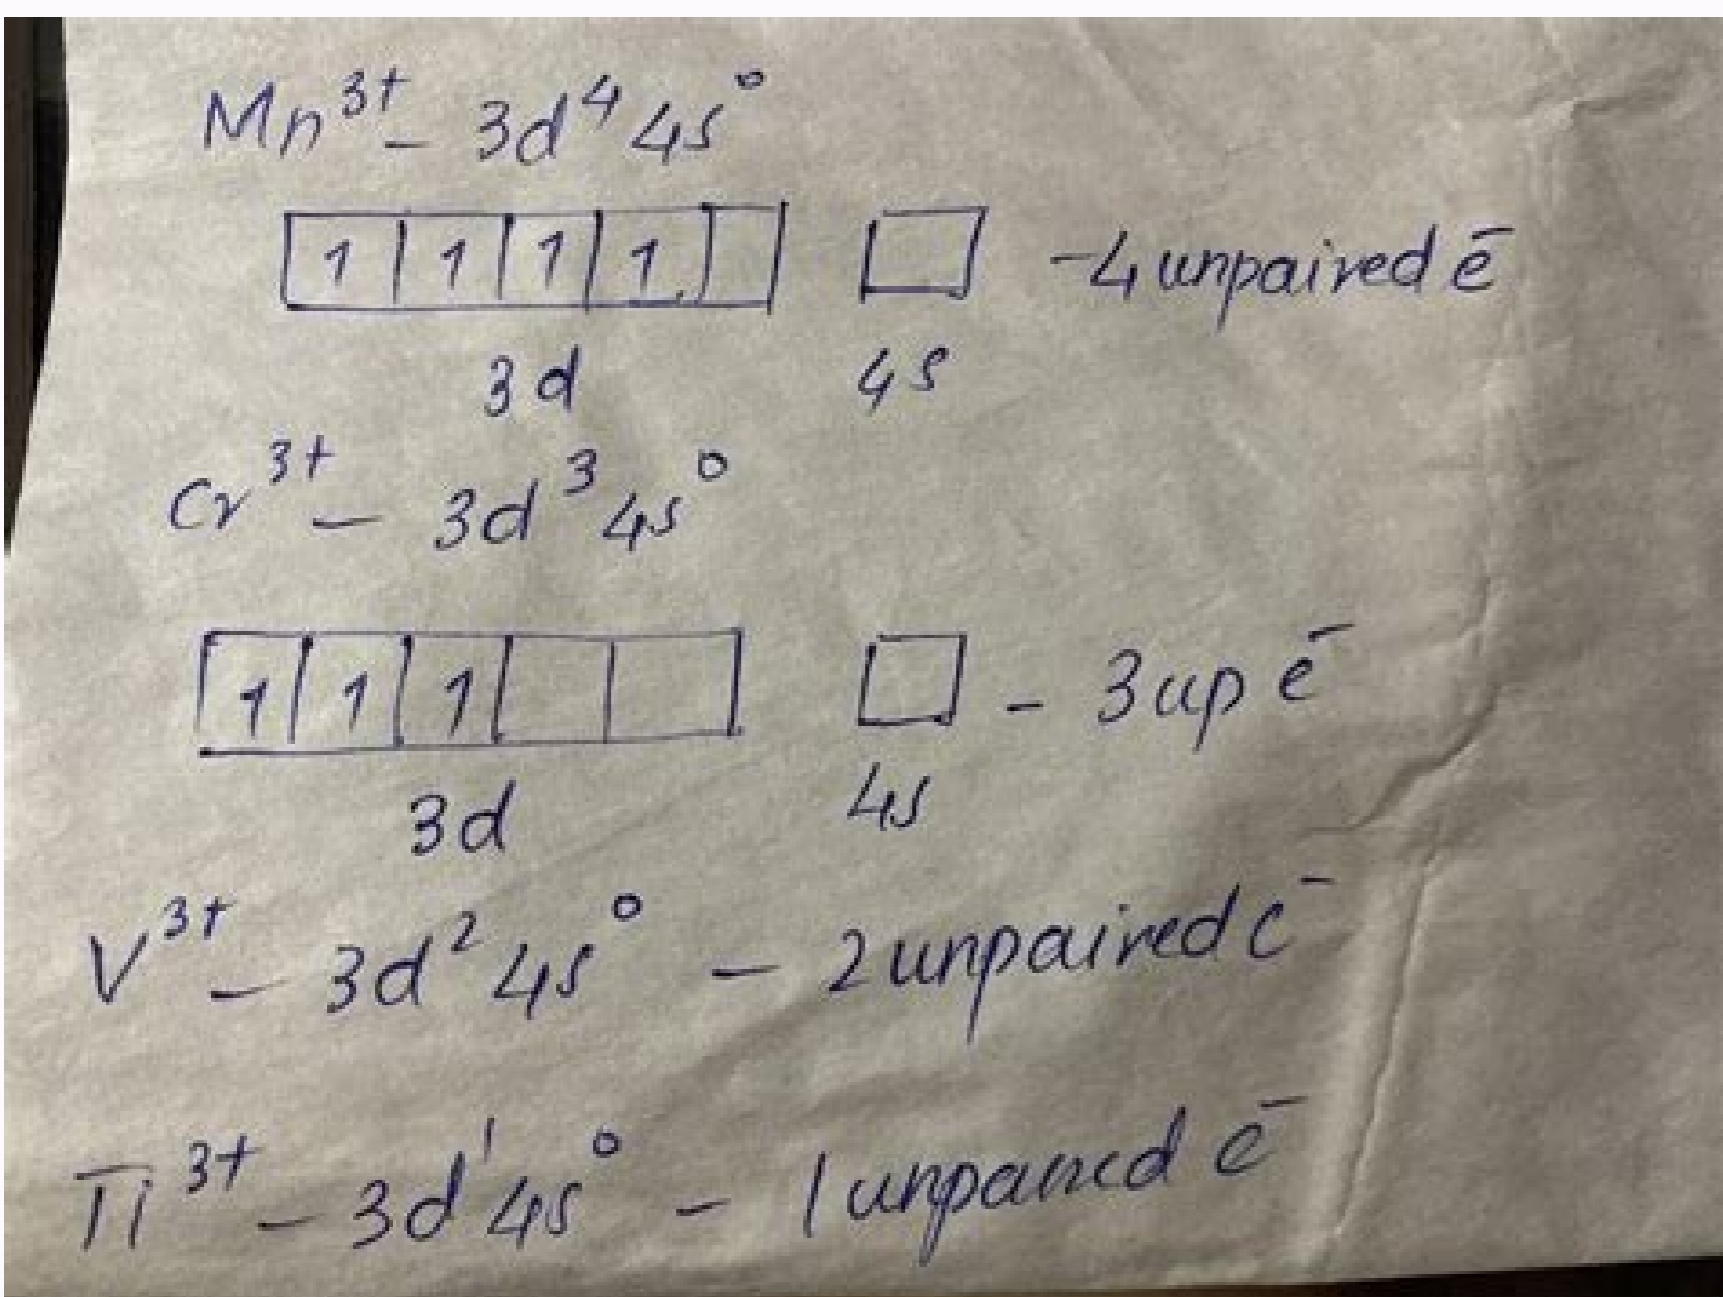 Mn³⁺ - 3d⁴ 4s⁰
1 1 1 1 - 4 unpaired ē
3d 4s
Cr³⁺ - 3d³ 4s⁰
1 1 1 - 3 up ē
3d 4s
V³⁺ - 3d² 4s⁰ - 2 unpaired ē
Ti³⁺ - 3d¹ 4s⁰ - 1 unpaired ē